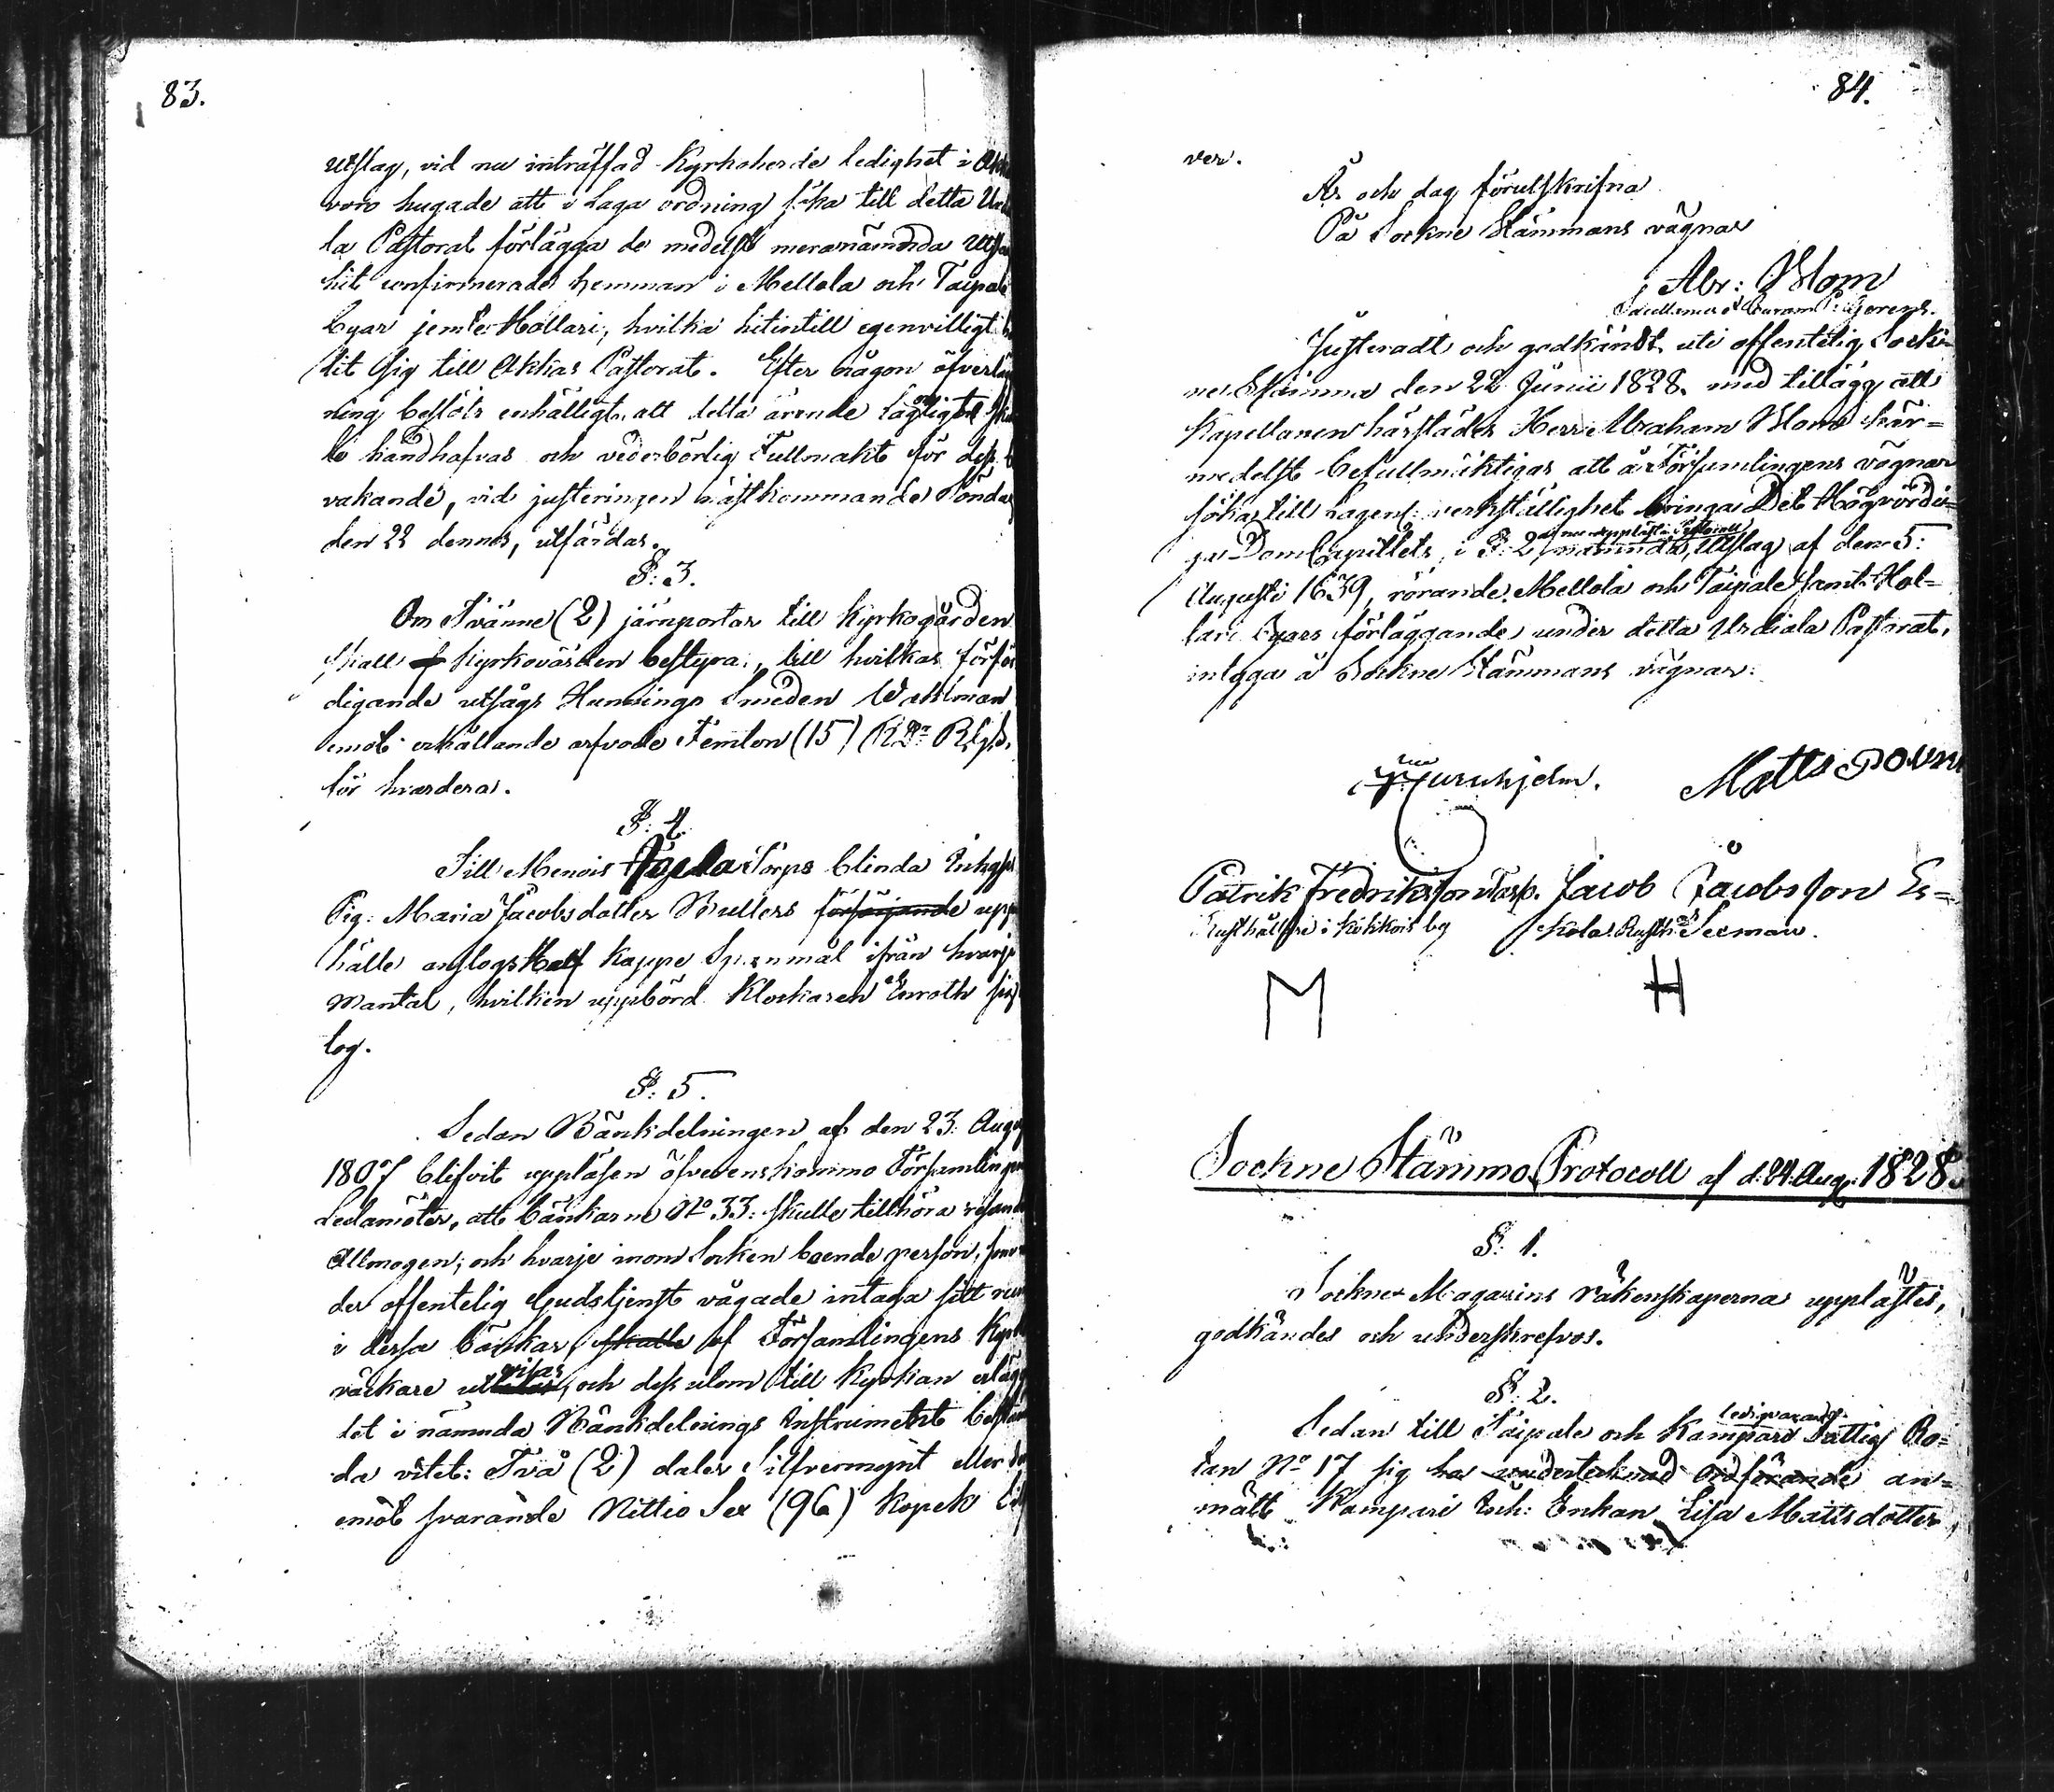 83.
Utslag, vid nu inträffad Kyrkoherde ledighet i
voro hugade att i Laga ordning söka till detta
la Pastorat förlägga de medelst meranämnda
hit confirmerade hemman i Mellola och Taipale
byar jemte Hollari, hvilka hitintill egenvilligt
lit sig till Akkas Pastorat. Efter någon öfverläg
ning beslöts enhälligt att detta ärende lagligen
le handhafvas och vederbörlig Fullmakt för dess
vakande, vid justeringen nästkommande Söndag
den 22 dennes, utfärdas.
§: 3.
Om Tvänne (2) järnportar till Kyrkogården
skall Kyrkovärden bestyra, till hvilkas förfär
digande utsågs Hunnings Smeden Wahlman
emot erhållande arfvode Femton (15) RDr Rgs.
för hvardera.
§: 4.
Till Menois Torps blinda Inhys
Pig: Maria Jacobsdotter Bullers försörjande upp
hälle anslogs Half Kappe Spanmål ifrån hvarje
Mantal, hvilken uppbörd Klockaren Enroth sig
tog.
§: 5.
Sedan Bänkdelningen af den 23: Aug
1807 blifvit uppläsen öfverenskommo Församlingens
Ledamöter, att bänkarne No 33: skulle tillhöra resande
Allmogen; och hvarje inom Socken boende person, som
der offentelig Gudstjenst vågade intaga sitt rum
i dessa bänkar, skulle af Församlingens Kyrko
väckare utvisas, och dess utom till Kyrkan erlägga
det i nämnda Bänkdelnings Instrumentet bestäm
da vitet: Två (2) daler Silfvermynt eller
emot svarande Nittio Sex (96) Kopek
84.
ver.
År och dag förutskrifna
På Sockne Stämmans vägnar
Abr: Blom
Justeradt och godkändt uti offentelig Sock-
ne Stämma den 22 Junii 1828. med tillägg att
Kapellanen härstädes Herr Abraham Blom här=
medelst befullmäktigas att å Församlingens vägnar
söka till Lagens verkställighet bringa Det Högvördi-
ga DomCapitlets, i §: 2 af nu uppläste Protocoll nämnda, Utslag af den 5:
Augusti 1639, rörande Mellola och Taipale samt Hol=
lari Byars förläggande under detta Urdiala Pastorat,
intyga å Sockne Stämmans vägnar.
Furuhjelm. Matts
Patrik Fredriksson Jacob Jacobsson Es=
Rusthållare i Kokkois by kola Rusth: Seeman.
M H
Sockne Stämmo Protocoll af d: 24: Aug: 1828.
§: 1.
Sockne Magasins räkenskaperna upplästes,
godkändes och underskrefvos.
§: 2.
Sedan till Taipale och Kampari ledigvarande Fattig Ro=
tan No 17 sig hos undertecknad Ordförande an=
mält Kampari Inh: Enkan Lisa Mattsdotter,